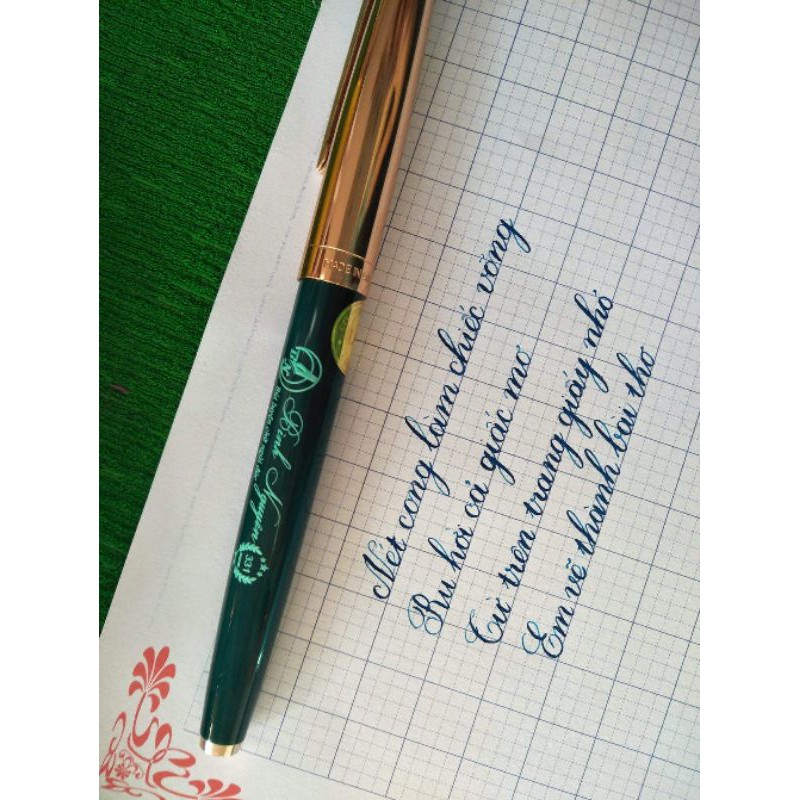 MADE IN
Bình Nguyên
331
Nét cong làm chiếc võng
Ru hời cả giấc mơ
Từ trên trang giấy nhỏ
Em vẽ thành bài thơ